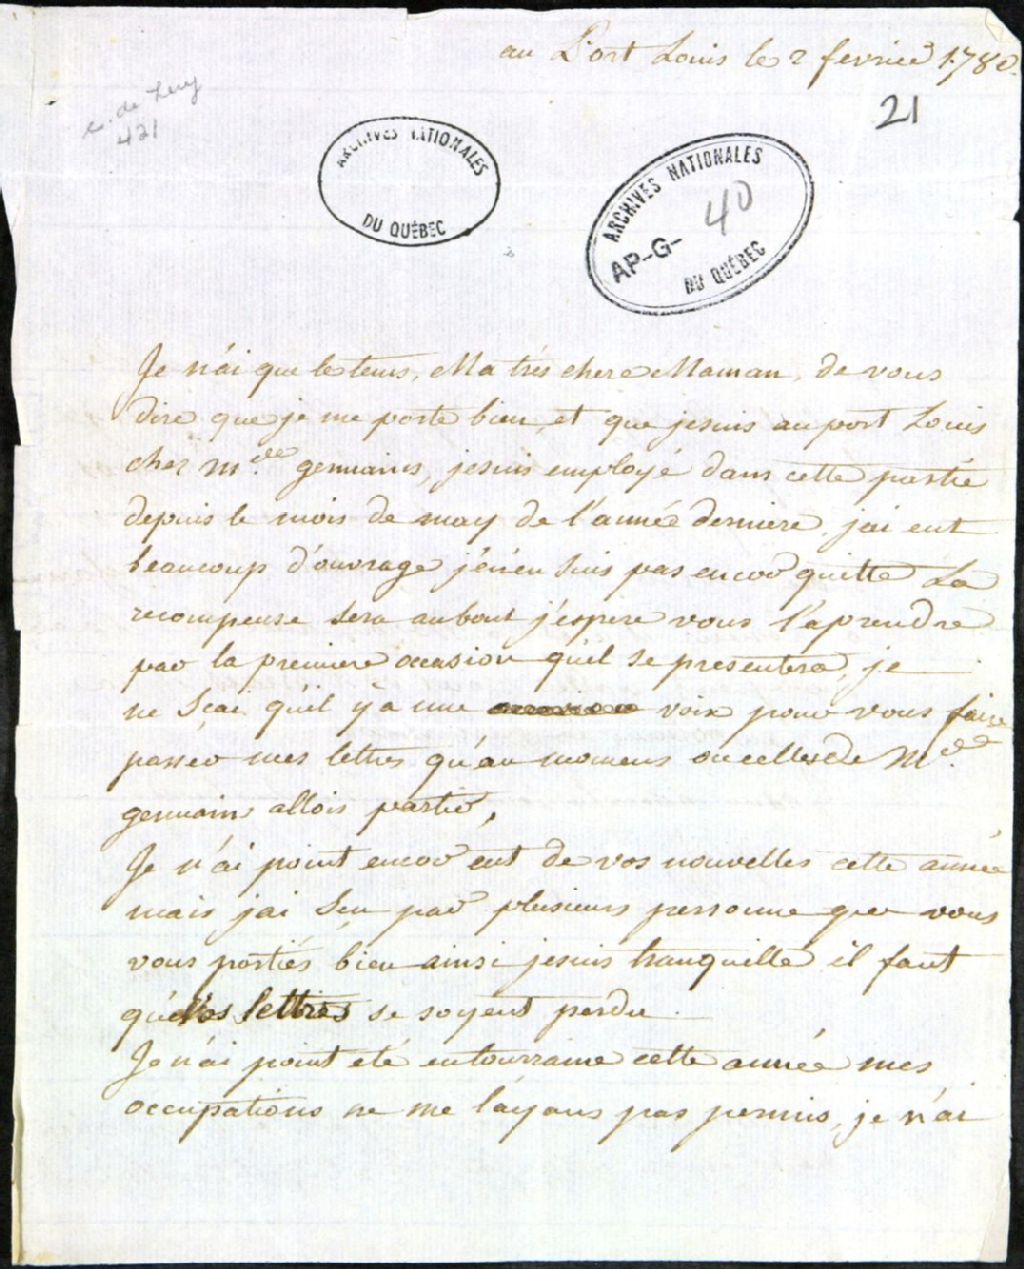 au Port Louis le 2 fevrier 1780.
c. de Lery
421
21
ARCHIVES NATIONALES
DU QUÉBEC
ARCHIVES NATIONALES
AP-G-
40
DU QUÉBEC
Je n'ai que le tems, Ma très chere Maman, de vous
dire que je me porte bien et que jesuis au port Louis
chez M.de germains, jesuis employé dans cette partie
depuis le mois de may de l'année derniere, jai eut
beaucoup d'ouvrage j'en'en suis pas encor quitte La
recompense sera aubout j'espere vous l'aprendre
par la premiere occasion qu'il se presentera, je
ne sçai qu'il y a une voix pour vous faire
passer mes lettres qu'au moment ou celles de M.de
germain allois partir,
Je n'ai point encor eut de vos nouvelles cette année
mais jai sçu par plusieurs personne que vous
vous portiés bien ainsi jesuis tranquille il faut
qué Vos lettres se soyent perdu.
Je n'ai point eté entourraine cette année mes
occupations ne me l'ayans pas permis, je n'ai